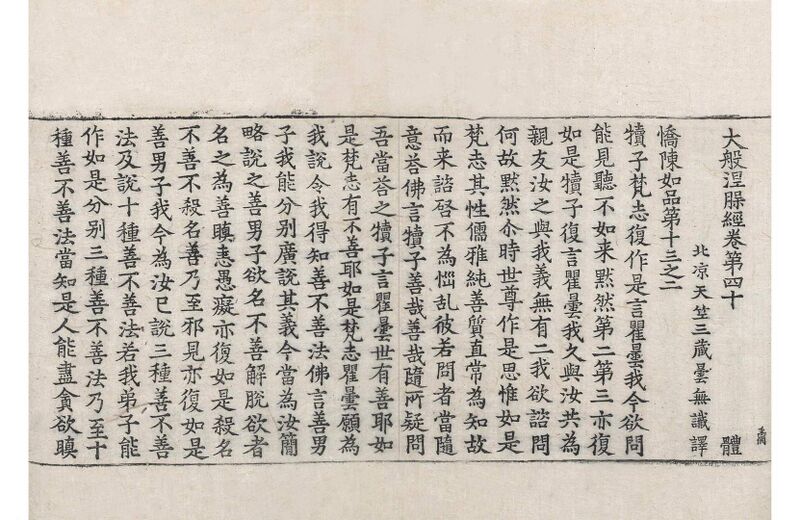 大般涅槃經卷第四十 體
北凉天竺三蔵曇無讖譯
憍陳如品第十三之二
犢子梵志復作是言瞿曇我今欲問
能見聽不如来默然第二第三亦復
如是犢子復言瞿曇我久與汝共為
親友汝之與我義無有二我欲諮問
何故默然尒時世尊作是思惟如是
梵志其性儒雅純善質直常為知故
而来諮啓不為惱乱彼若問者當隨
意荅佛言犢子善哉善哉隨所疑問
吾當荅之犢子言瞿曇世有善耶如
是梵志有不善耶如是梵志瞿曇願為
我說令我得知善不善法佛言善男
子我能分别廣說其義今當為汝簡
略說之善男子欲名不善解脫欲者
名之為善瞋恚愚癡亦復如是殺名
不善不殺名善乃至邪見亦復如是
善男子我今為汝已說三種善不善
法及說十種善不善法若我弟子能
作如是分别三種善不善法乃至十
種善不善法當知是人能盡貪欲瞋